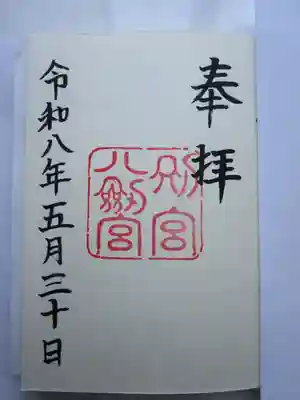 奉拝
別宮
八剱宮
令和八年五月三十日